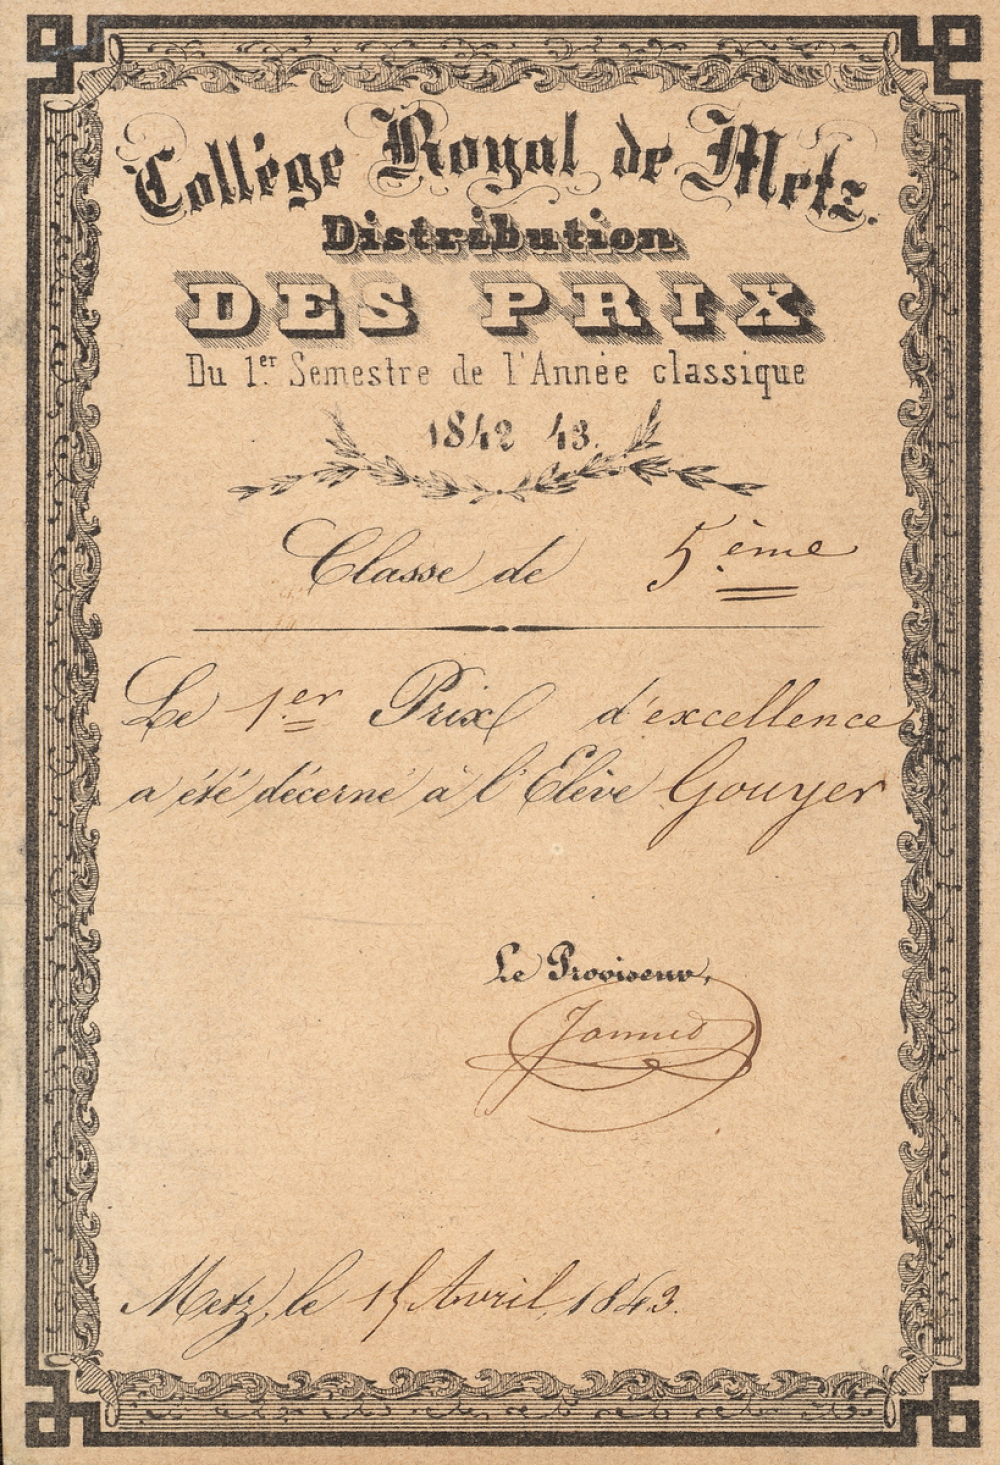 Collège Royal de Metz.
Distribution
DES PRIX
Du 1er. Semestre de l'Année classique
1842 43.
Classe de 5.ème
Le 1.er Prix d'excellence
a été décerné à l'Elève Gouyer
Le Proviseur,
Metz, le 15 Avril 1843.